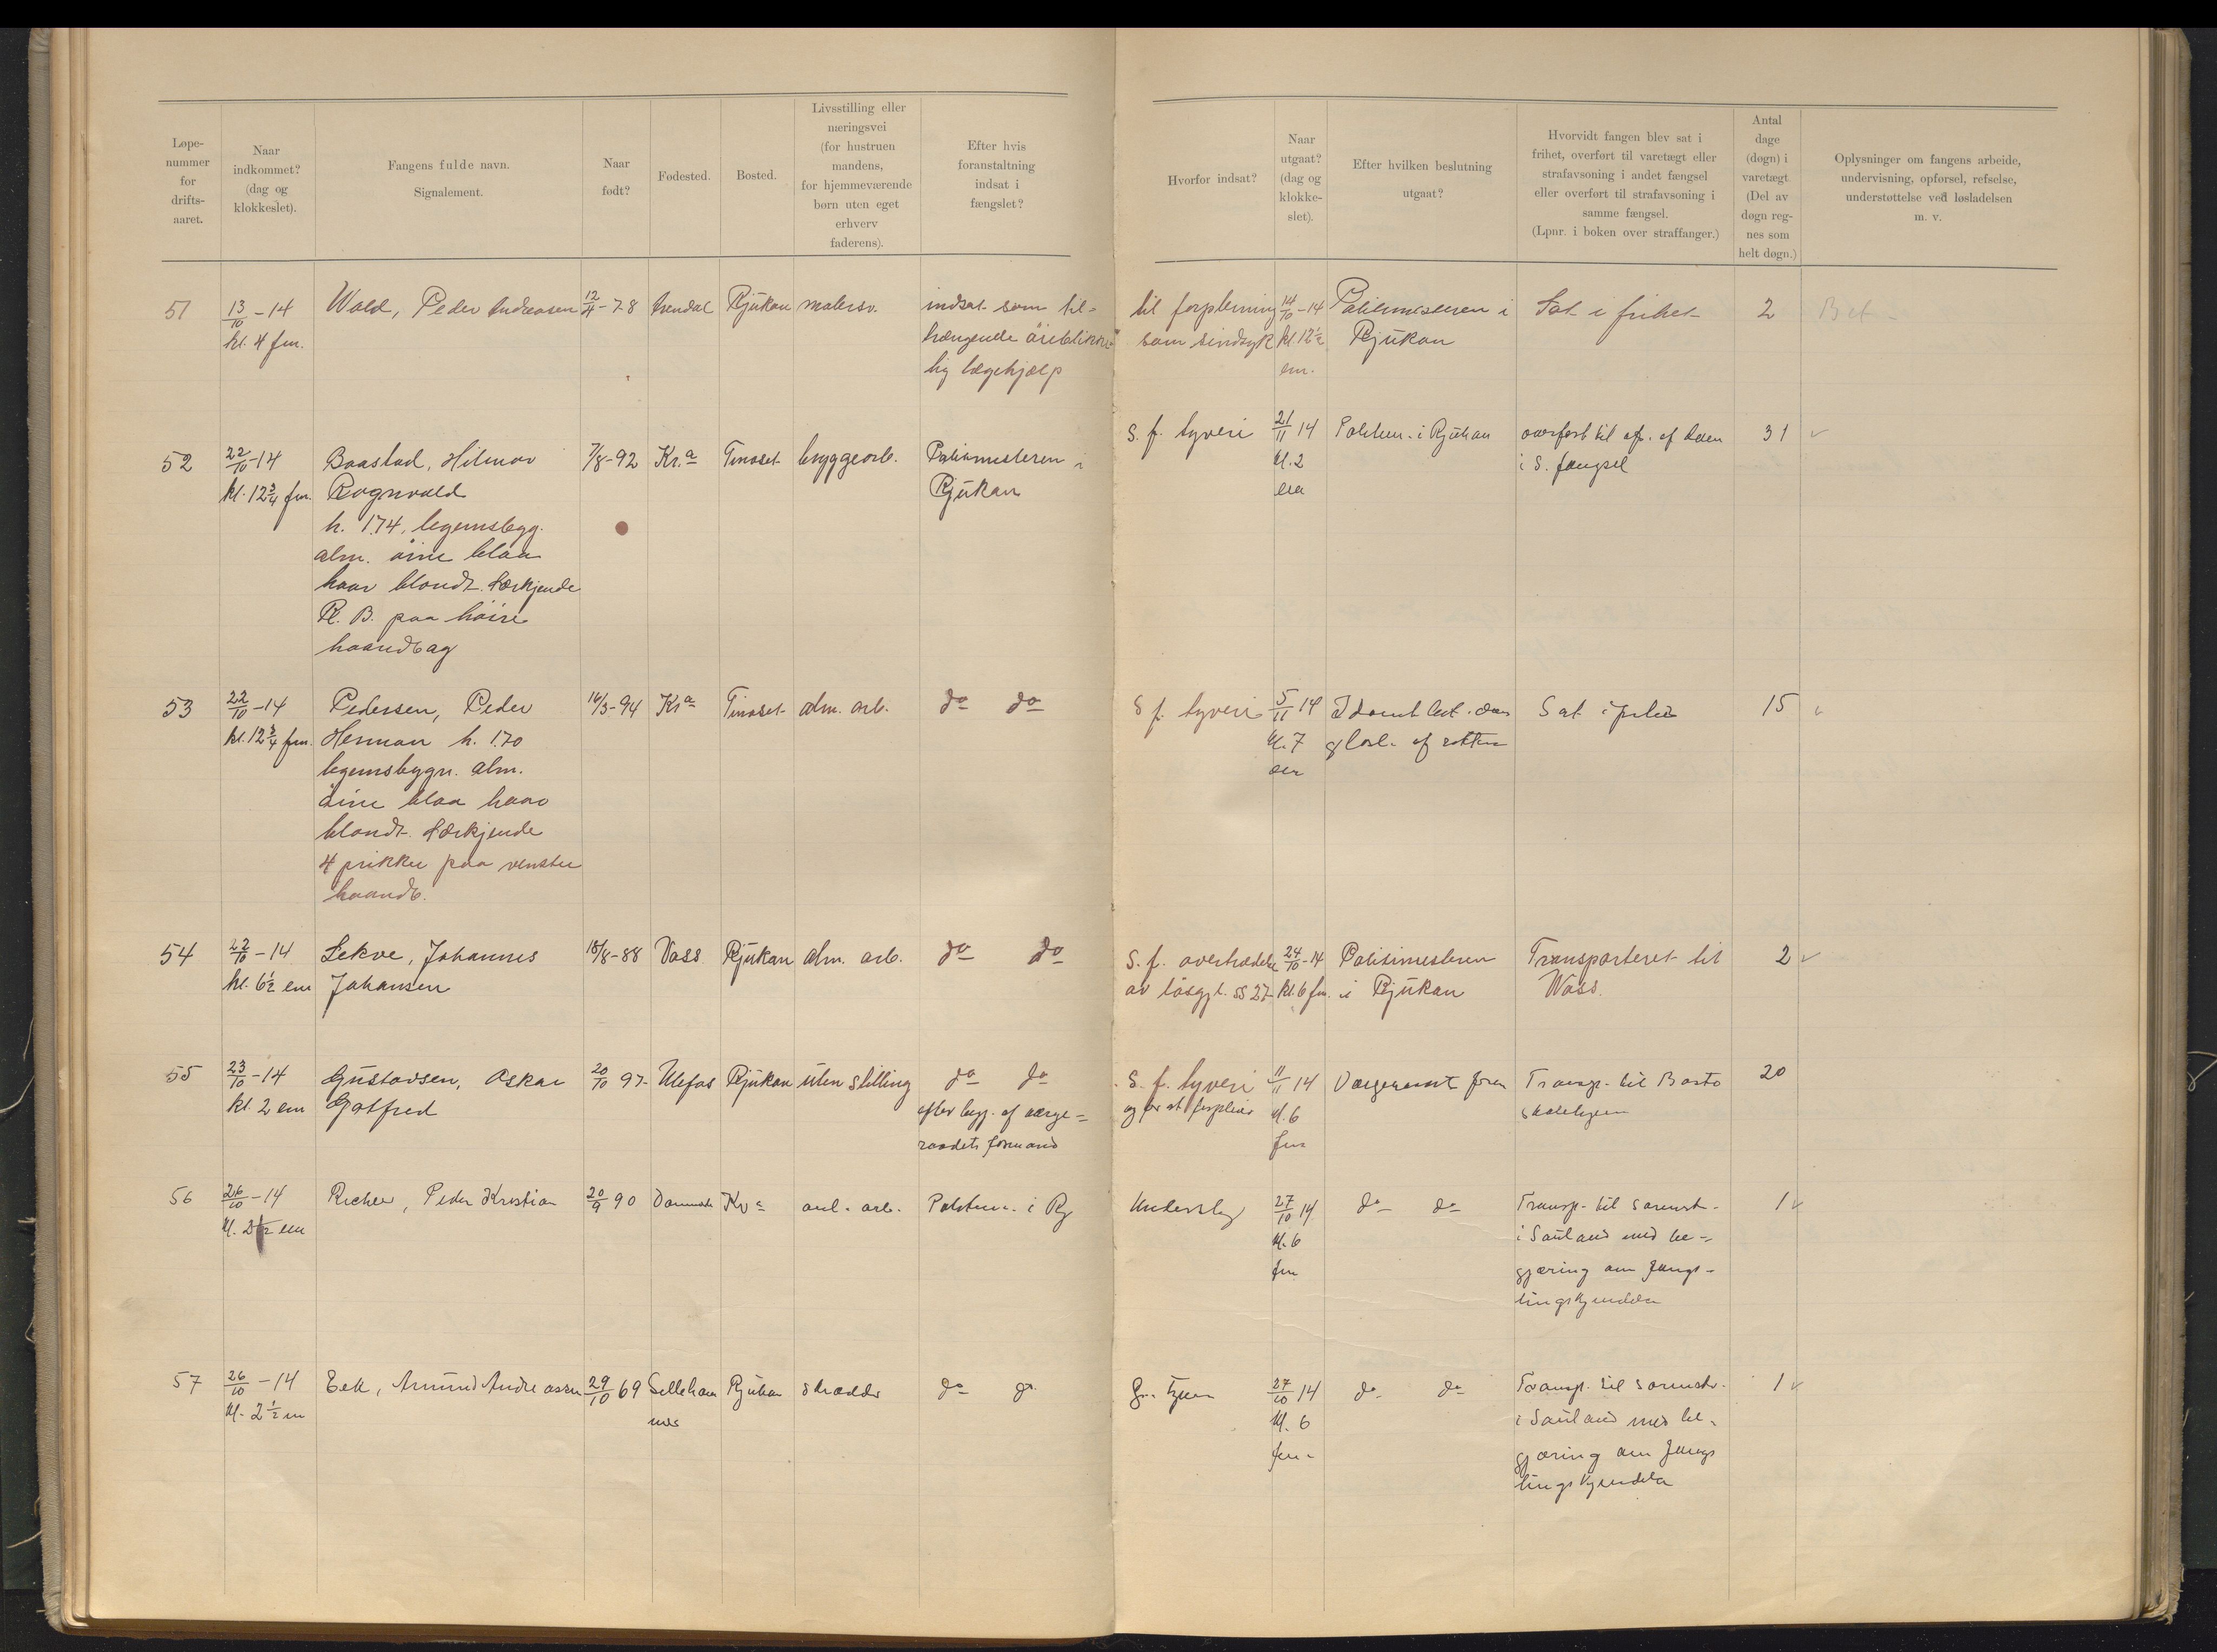 Løpe-
nummer
for
drifts-
aaret.
Naar
indkommet?
(dag og
klokkeslet).
Fangens fulde navn.
Signalement.
Naar
født?
Fødested.
Bosted.
Livsstilling eller
næringsvei
(for hustruen
mandens,
for hjemmeværende
børn uten eget
erhverv
faderens).
Efter hvis
foranstaltning
indsat i
fængslet?
Hvorfor indsat?
Naar
utgaat?
(dag og
klokke-
slet).
Efter hvilken beslutning
utgaat?
Hvorvidt fangen blev sat i
frihet, overført til varetægt eller
strafavsoning i andet fængsel
eller overført til strafavsoning i
samme fængsel.
(Lpnr. i boken over straffanger.)
Antal
dage
(døgn) i
varetægt
(Del av
døgn reg-
nes som
helt døgn.)
Oplysninger om fangens arbeide,
undervisning, opførsel, refselse,
understøttelse ved løsladelsen
m. v.
51
13/10 - 14
kl. 4 fm.
Wold, Peder Andreasen
12/4 - 78
Arendal
Rjukan
malersv.
indsat som til-
trængende øieblikke-
lig lægehjælp
til forpleining
som sindsyk
14/10 - 14
kl. 12½
em.
Politimesteren i
Rjukan
Sat i frihet
2
Bet
52
22/10 - 14
kl. 12¾ fm.
Baastad, Hilmar
Ragnvald
h. 1.74, legemsbygg.
alm. øine blaa
haar blondt. Særkjende
R. B. paa høire
haandbag
7/8 - 92
Kr.a
Tinoset
bryggearb.
Politimesteren i
Rjukan
S. f. tyveri
21/11 14
kl. 2
em
Politim. i Rjukan
overført til afs. af dom
i S. fængsel
31
53
22/10 - 14
kl. 12¾ fm.
Pedersen, Peder
Herman h. 1.70
legemsbygn. alm.
øine blaa haar
blondt. Særkjende
4 prikker paa venstre
haandb.
14/3 - 94
Kra
Tinoset
alm. arb.
do do
S f. tyveri
5/11 14
kl. 7
em
Idømt bet. dom
af retten
Sat i frihet
15
54
22/10 - 14
kl. 6½ em
Lekve, Johannes
Johansen
18/8 - 88
Voss
Rjukan
alm. arb.
do do
S. f. overtrædelse
av løsgjl. §§ 27
24/10 - 14
kl. 6 fm.
Politimesteren
i Rjukan
Transporteret til
Woss.
2
55
23/10 - 14
kl. 2 em
Gustavsen, Oskar
Gotfred
20/10 97
Ulefos
Rjukan
uten stilling
do do
efter begj. af værge-
raadets formand
S. f. tyveri
og for at forpleies
11/11 14
kl. 6
fm
Transp. til Bastø
skolehjem
20
56
26/10 - 14
kl. 2½ em
Richer, Peder Kristian
20/9 90
Danmark
Kra
anl. arb.
Politim. i Rj
Underslag
27/10 14
kl. 6
fm
do do
Transp. til Sorenskr.
i Sauland med be-
gjæring om fængs-
lingskjendelse
1
57
26/10 - 14
kl. 2½ em
Eek, Amund Andreassen
29/10 69
Lilleham
mer
Rjukan
skrædder
do do
27/10 14
kl. 6
fm.
do do
Transp. til Sorenskr.
i Sauland med be-
gjæring om fængs
lingskjendelse
1